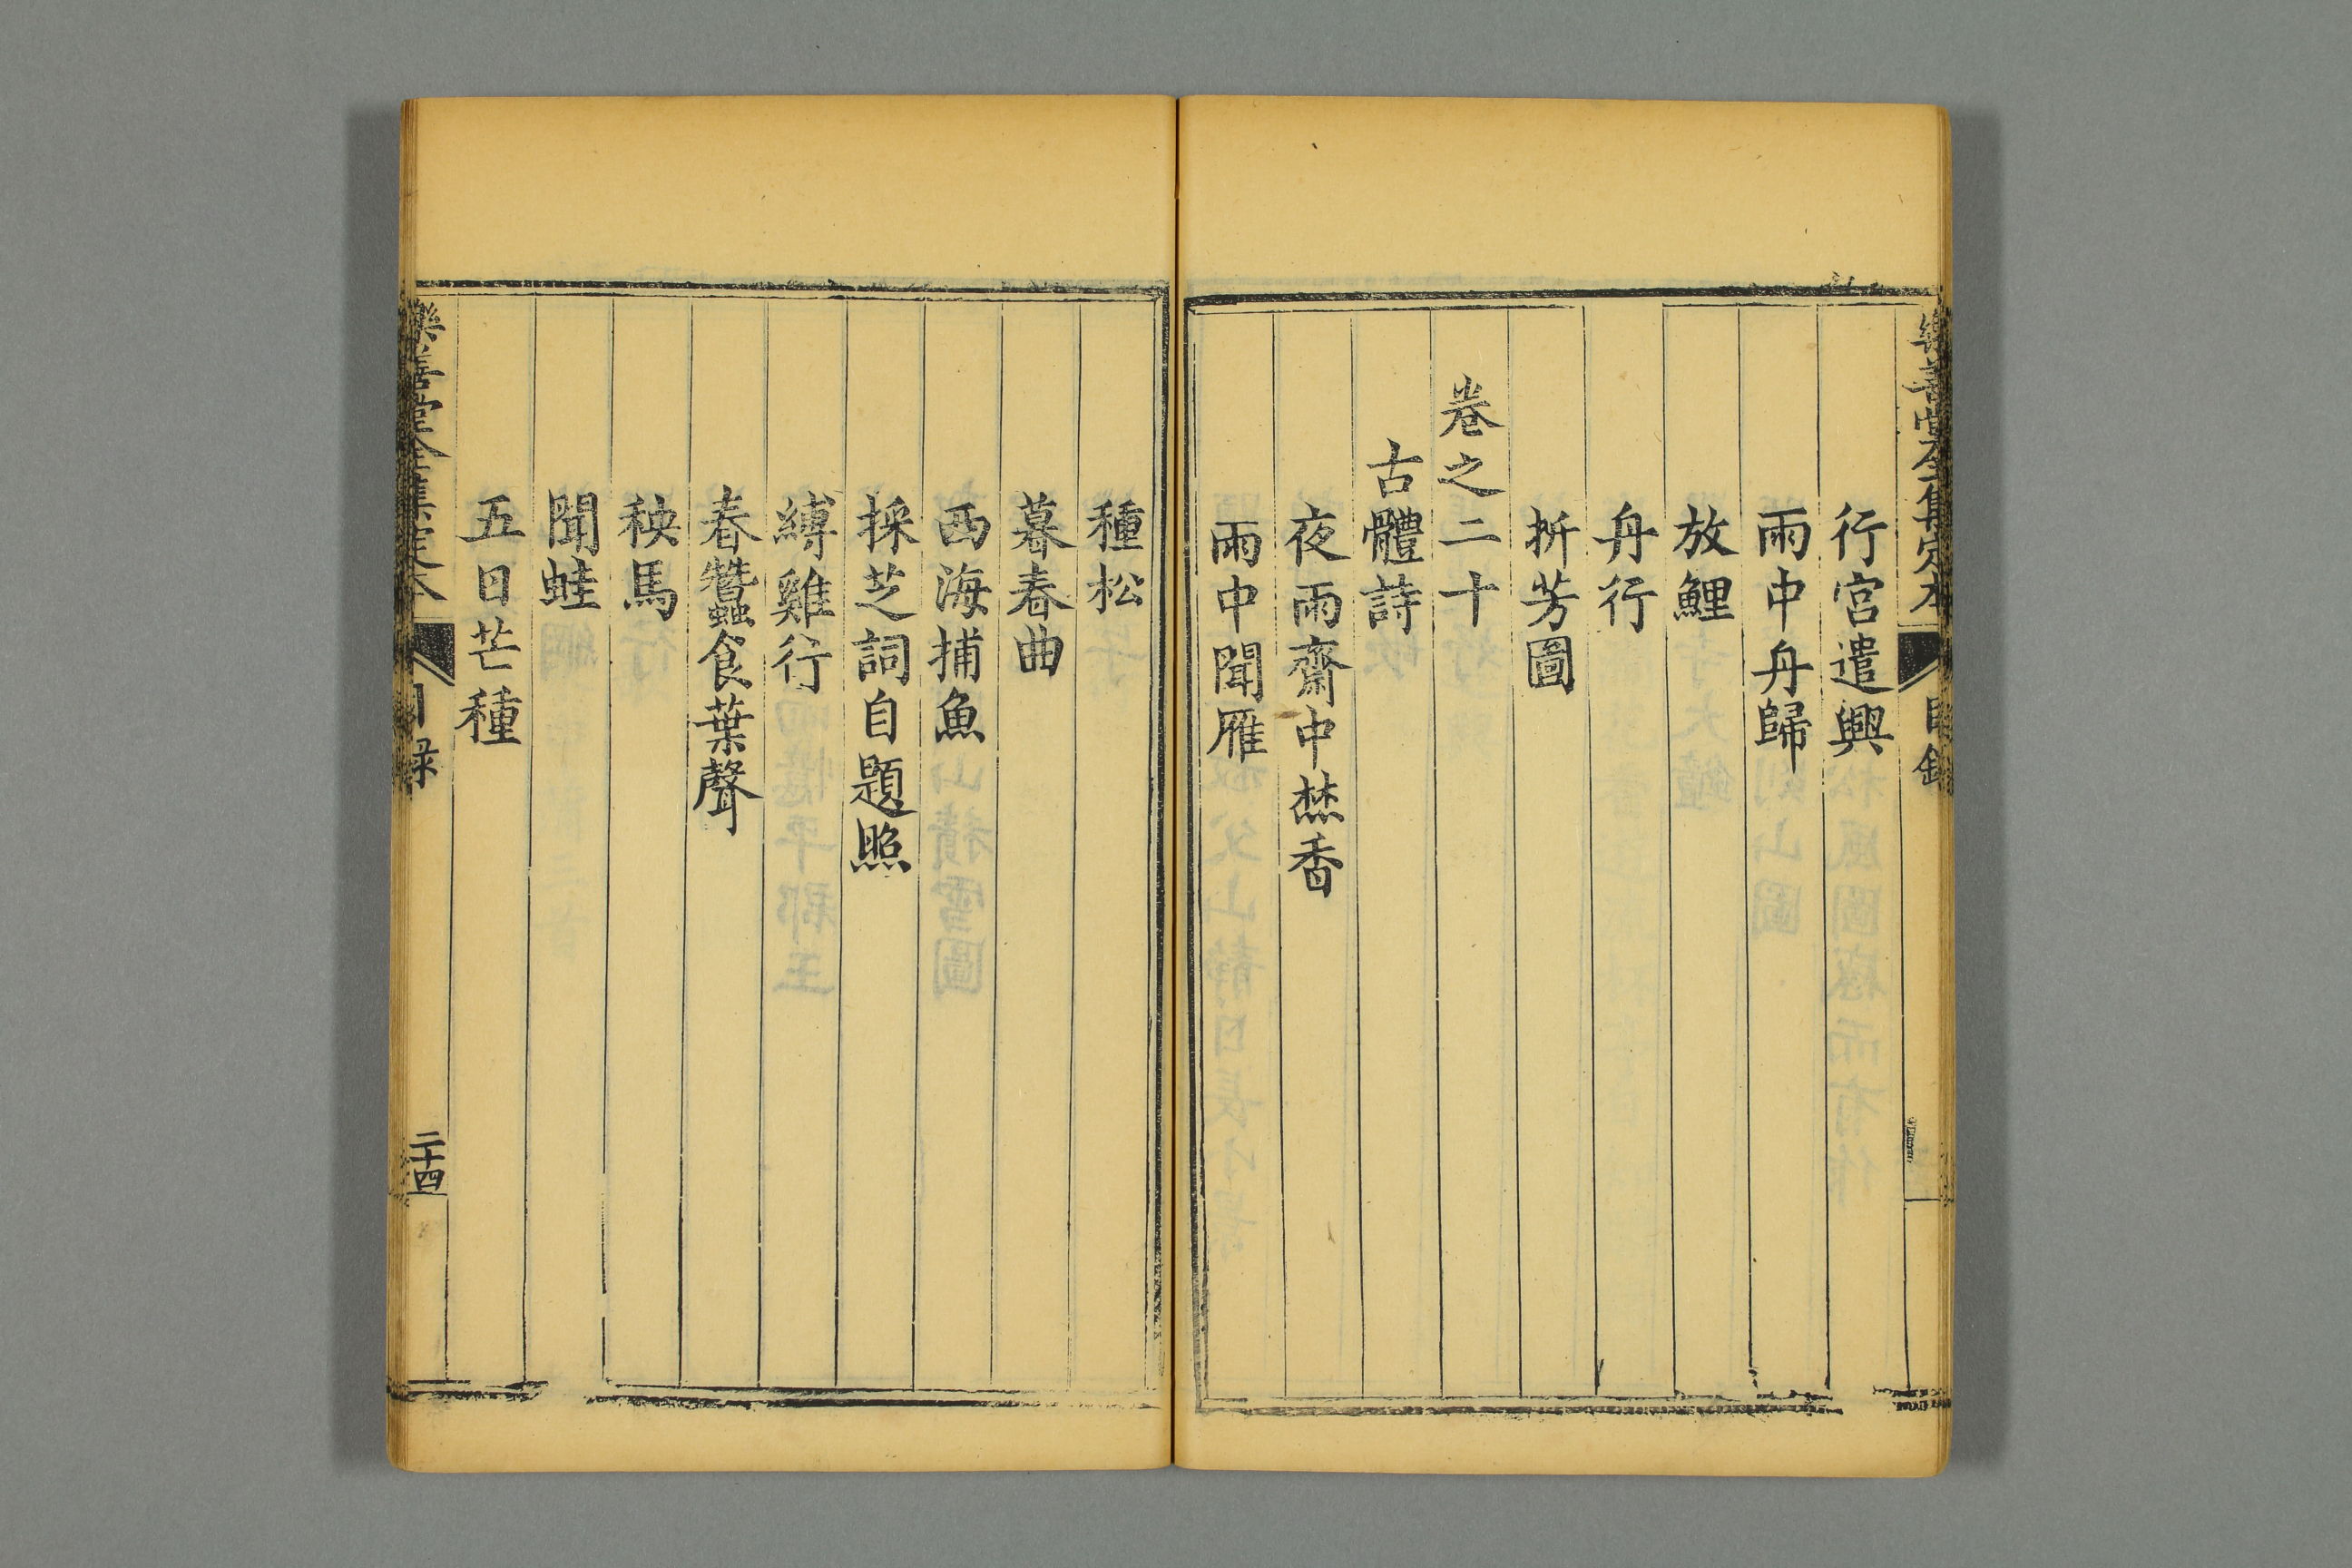 樂善堂全集定本 目錄
行宮遣興
雨中舟歸
放鯉
舟行
折芳圖
卷之二十
古體詩
夜雨齋中焚香
雨中聞雁
種松
暮春曲
西海捕魚
採芝詞自題照
縛雞行
春蠶食葉聲
秧馬
聞蛙
五日芒種
樂善堂全集定本 目錄 二十四